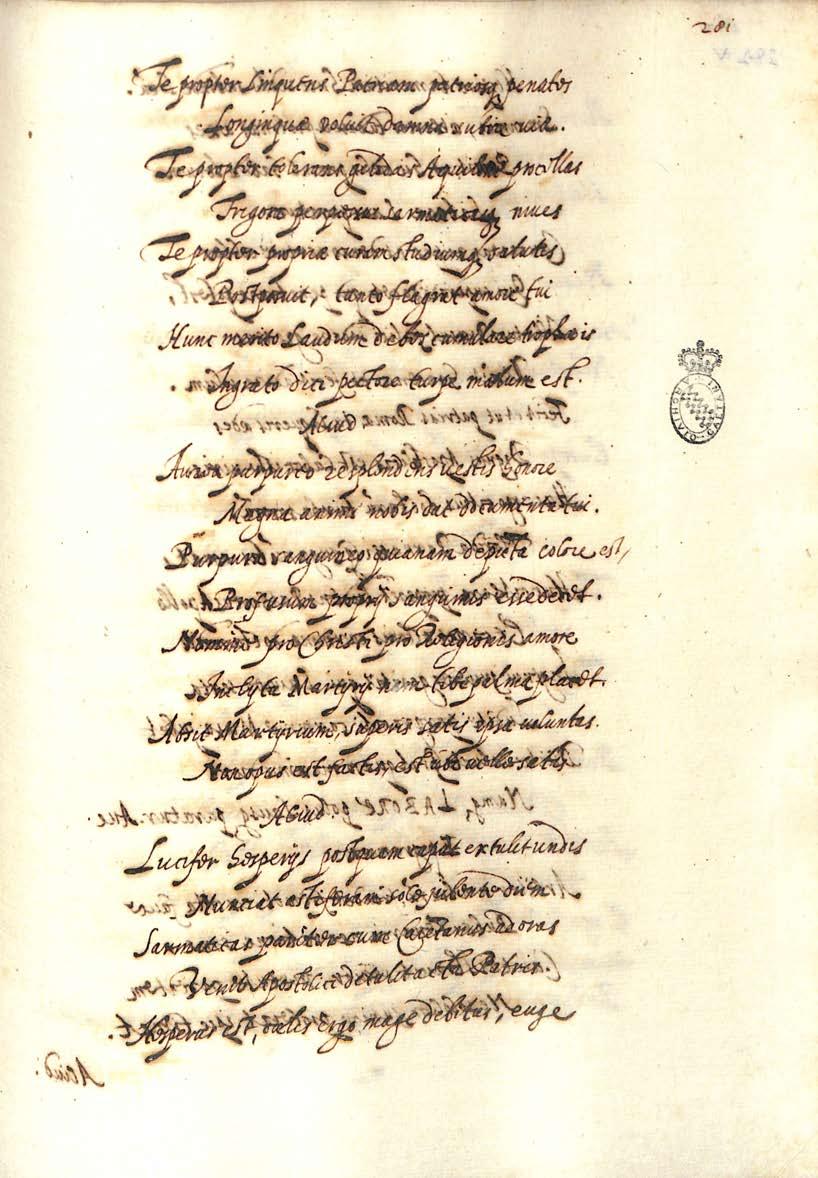 281
Te propter linquens Patriam patriosq penates
Longinquæ voluit damna subire viæ.
Te propter tolerans gelidas Aquilonis procellas
Frigora perpessus Sarmaticasq nives
Te propter propriæ curam studiumq salutis
Postposuit, tanto flagrat amore tui
Hunc merito Laudum debes cumulare trophæis
Ingrato dici pectore turpe malum est.
Aliud
Aurea purpureo resplendens vestis honore
Magna animi nobis dat documenta tui.
Purpura sanguineo quianam depicta colore est,
Profusum proprij sanguinis esse docet.
Nominis pro Christi pro Religionis amore
Inclyta Martyrij nam tibi palma placet.
Absit Martyrium, superis satis ipsa voluntas.
Non opus est factis, est ubi velle satis
Aliud
Lucifer hesperijs postquam caput extulit undis
Nunciat astiferam sole jubente diem
Sarmaticas pariter cum Caietanus ad oras
Venit Apostolici detulit acta Patris.
Hesperus est, cælis ergo mage debitus, euge
ARCHIVIO CAETANI